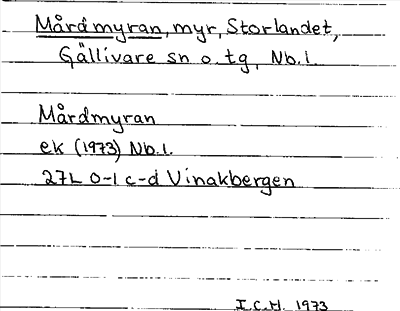 Mårdmyran, myr, Storlandet,
Gällivare sn o. tg, Nb. l.
Mårdmyran
ek (1973) Nb. l.
27L 0-1 c-d Vinakbergen
I.C.H. 1973